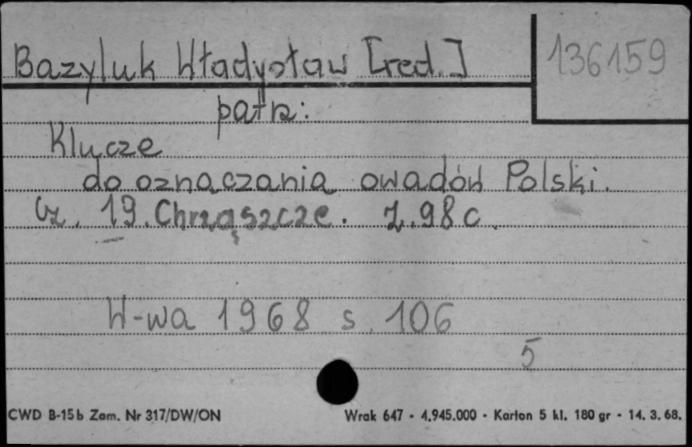 Bazyluk Władysław [red.]
136159
patrz:
Klucze
do oznaczania owadów Polski.
Cz. 19. Chrząszcze. Z. 98c.
W-wa 1968 s. 106
5
CWD B-15b Zam. Nr 317/DW/ON
Wrak 647 - 4.945.000 - Karton 5 kl. 180 gr - 14. 3. 68.